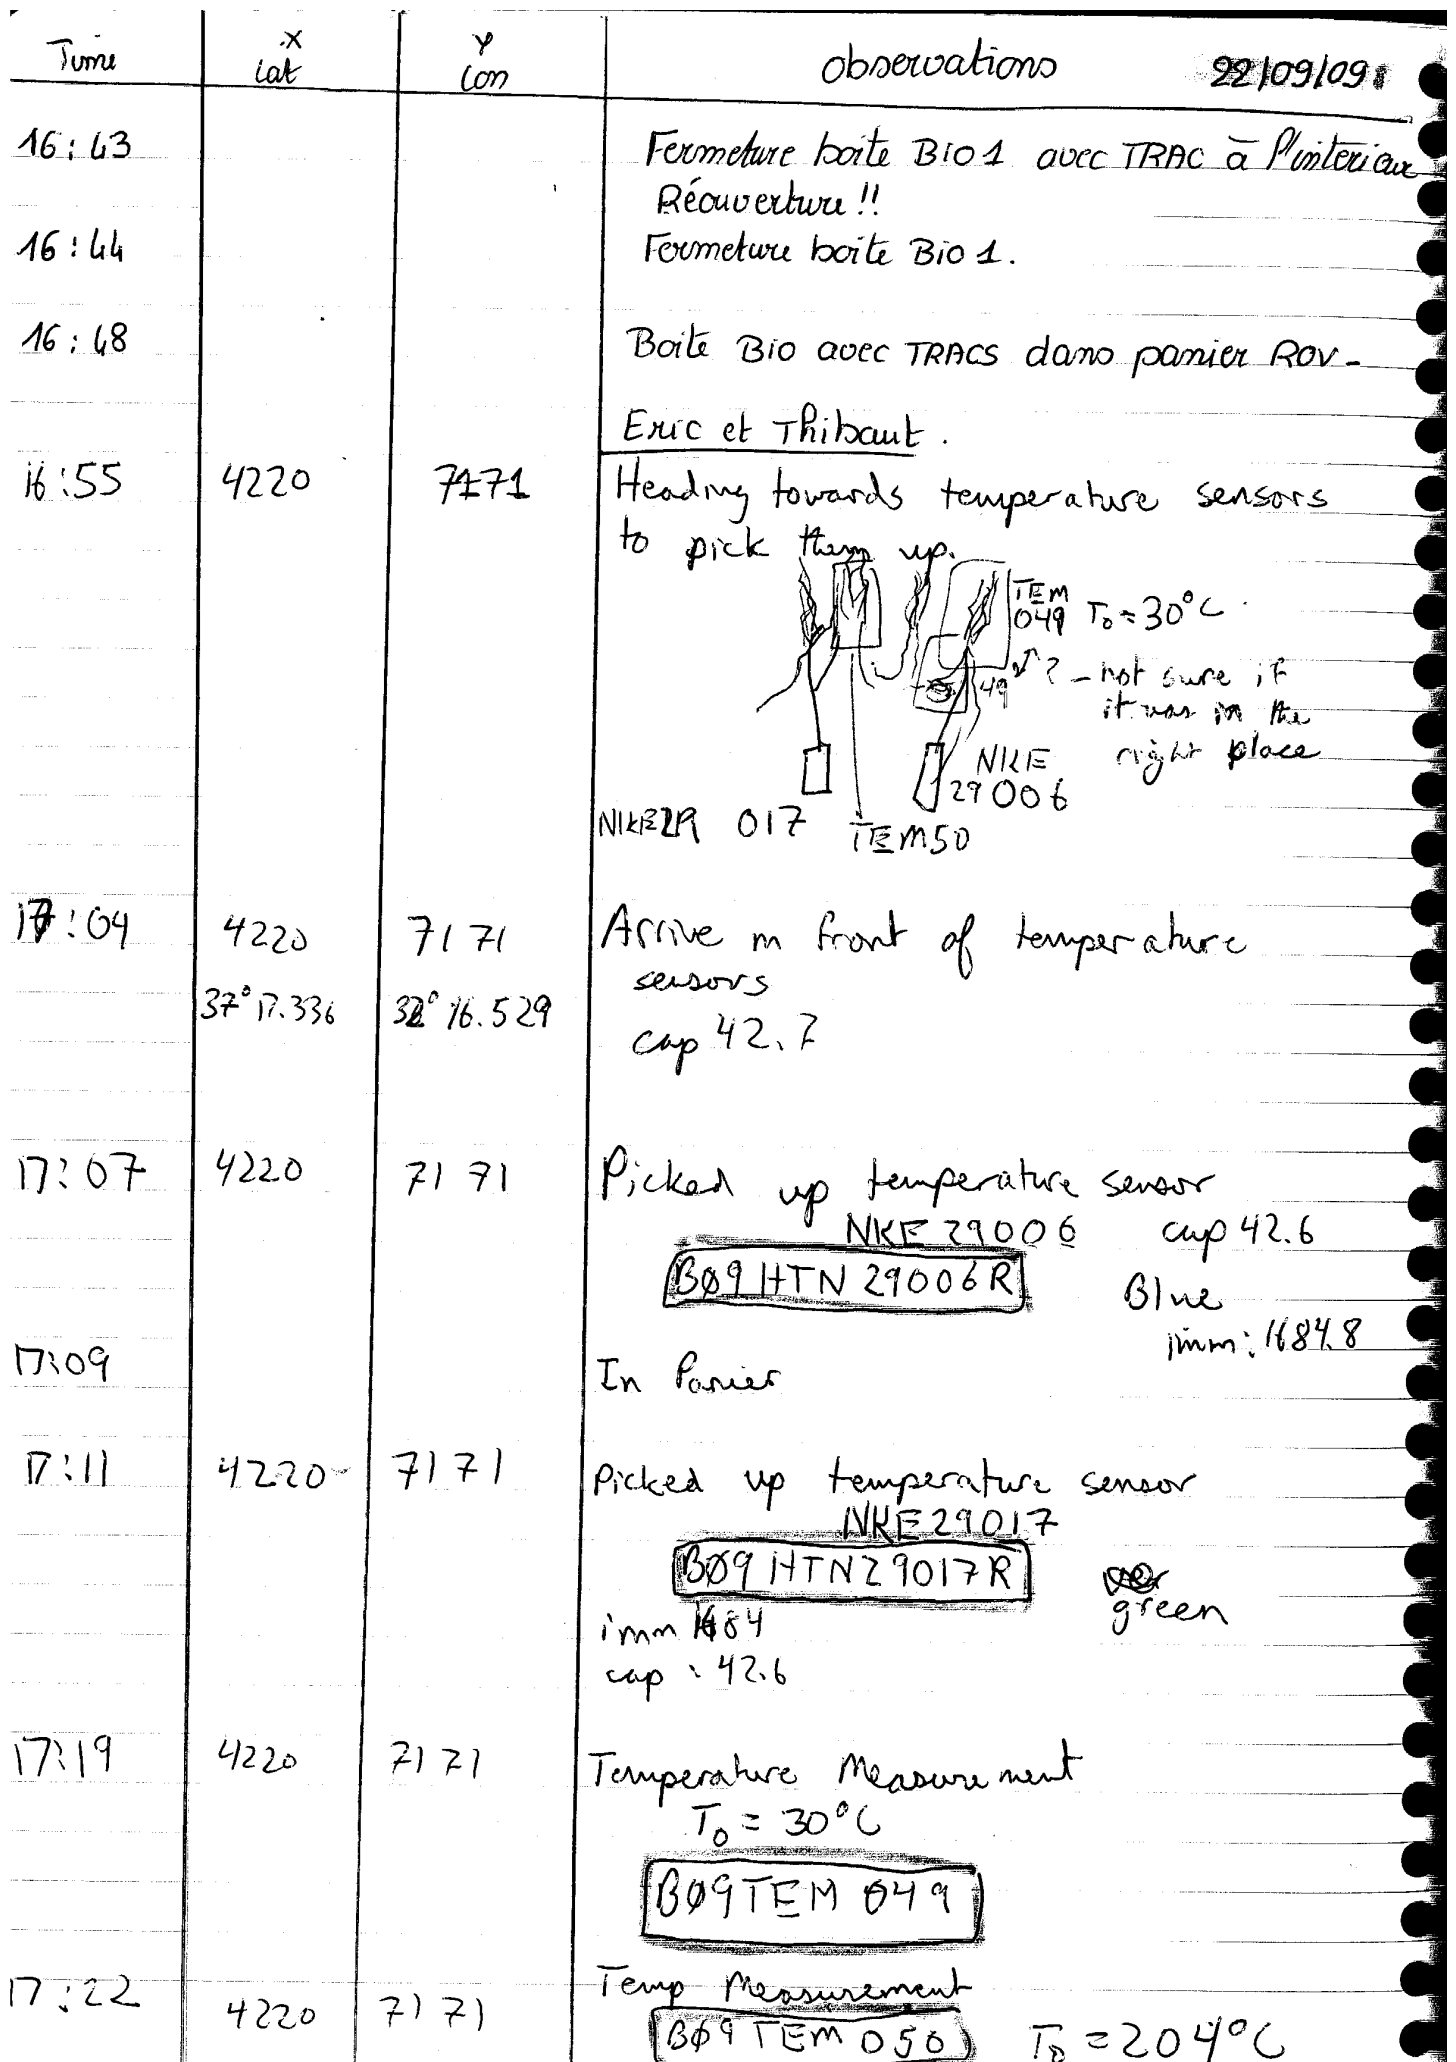 Time X lat Y lon observations 22/09/09
16:43 Fermeture boite BIO1 avec TRAC à l'intérieur
Réouverture !!
16:44 Fermeture boite Bio 1.
16:48 Boite Bio avec TRACS dans panier ROV-
Eric et Thibaut.
16:55 4220 7171 Heading towards temperature sensors
to pick them up.
TEM
049 T₀ = 30°C
49 ? - not sure if
it was in the
right place
NKE
29006
NKE29 017 TEM50
17:04 4220 7171 Arrive in front of temperature
sensors
37° 17.336 32° 16.529
cap 42.7
17:07 4220 7171 Picked up temperature sensor
NKE 29006 cap 42.6
BØ9 HTN 29006R Blue
imm: 1684.8
17:09 In Panier
17:11 4220 7171 Picked up temperature sensor
NKE29017
BØ9 HTN29017R
green
imm 1684
cap : 42.6
17:19 4220 7171 Temperature Measurement
T₀ = 30°C
BØ9TEM 049
17:22 4220 7171 Temp Measurement
BØ9 TEM 050 T₀ = 204°C